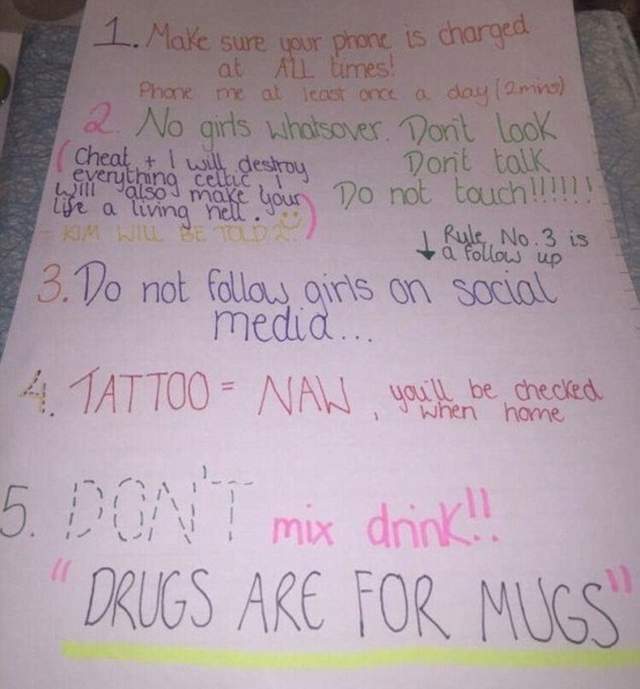 1. Make sure your phone is charged
at ALL times!
Phone me at least once a day (2mins)
2. No girls whatsover. Don't look
Don't talk
Do not touch!!!!!!
(Cheat + I will destroy
everything celtic I
will also make your
life a living hell. )
- KIM WILL BE TOLD 2!
↓ Rule No. 3 is
a follow up
3. Do not follow girls on social
media...
4. TATTOO = NAW, you'll be checked
when home
5. DON'T mix drink!!
"DRUGS ARE FOR MUGS"